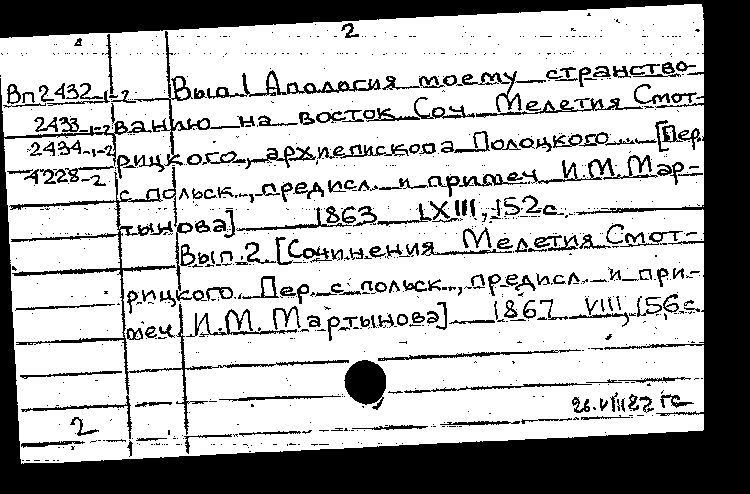 2
Вп 2432-1-2 Вып. 1 Апология моему странство-
2433-1-2 ванию на восток Соч Мелетия Смот-
2434-1-2 рицкого, архиепископа Полоцкого... [Пер.
4228-2 с польск., предисл. и примеч И.М. Мар-
тынова] 1863 LXIII, 152 с.
Вып. 2 [Сочинения Мелетия Смот-
рицкого. Пер. с польск., предисл. и при-
меч. И.М. Мартынова] 1867 VIII, 156 с.
26.VIII 82 гс
2